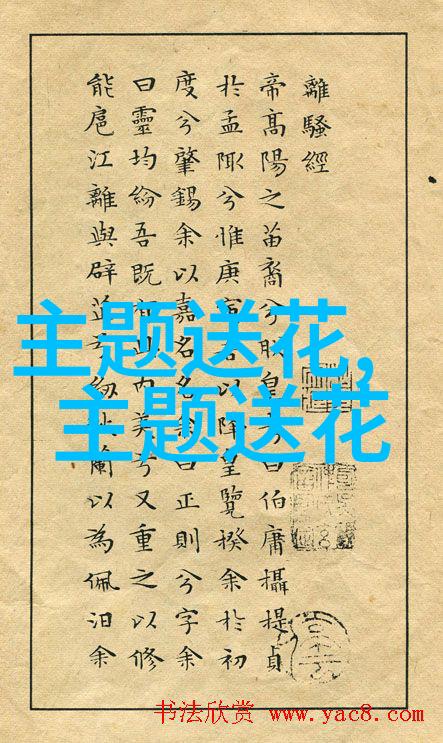 離騷經
帝高陽之苗裔兮朕皇考曰伯庸攝提貞
於孟陬兮惟庚寅吾以降皇覽揆余於初
度兮肇錫余以嘉名名余曰正則兮字余
曰靈均紛吾既有此內美兮又重之以修
能扈江離與辟芷兮紉秋蘭以為佩汨余
主题送花,
主题送花
书法欣赏 www.yac8.com